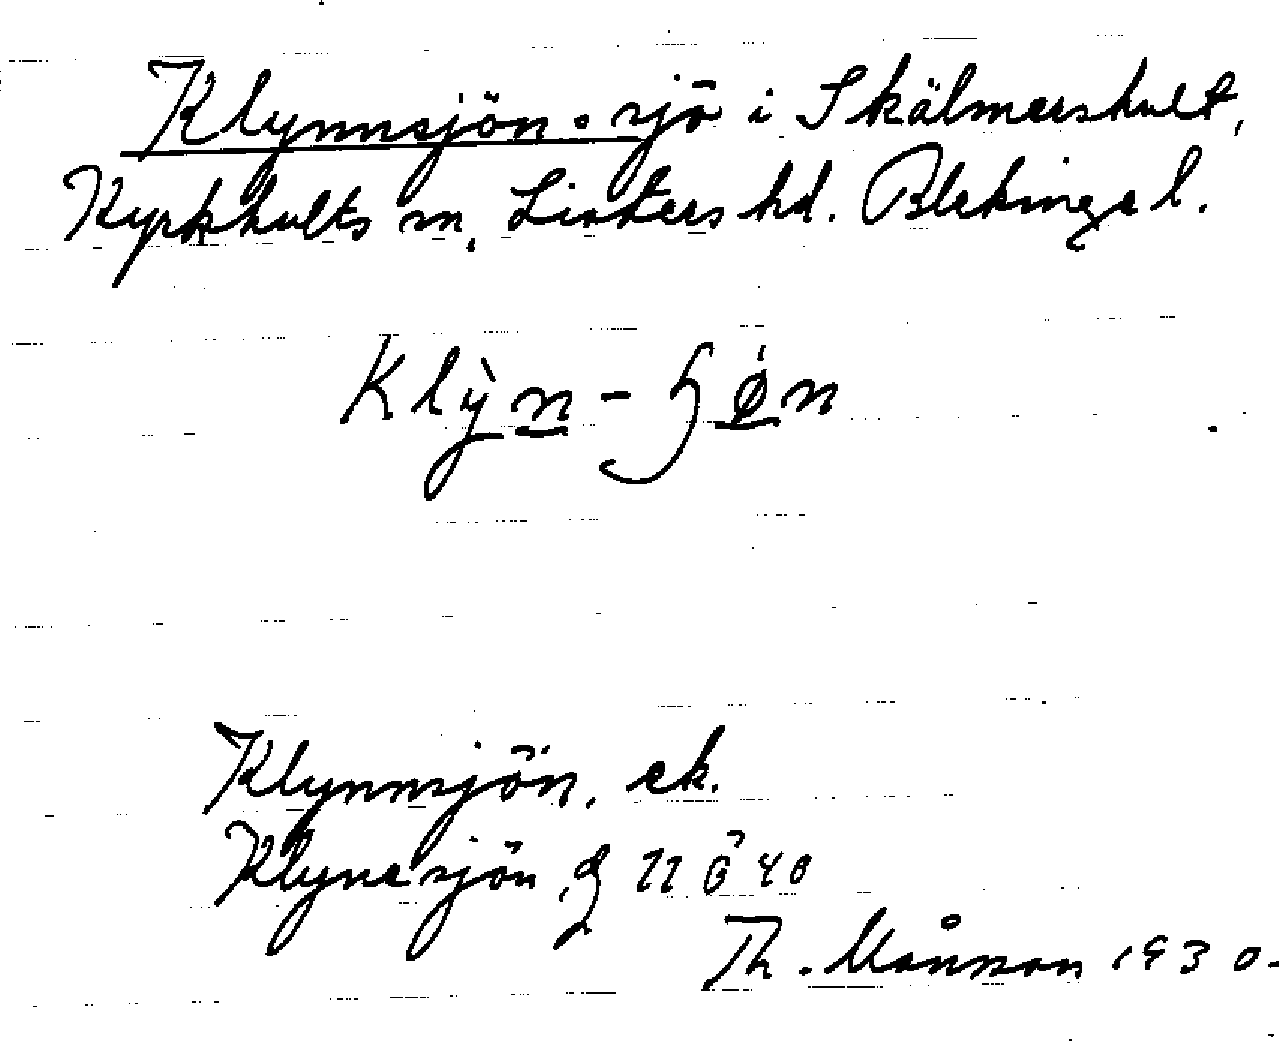 Klynnsjön. sjö i Skälmershult,
Kyrkhults sn, Listers hd. Blekinge l.
Klỳn-ɧǿn
Klynnsjön, ek.
Klynesjön,
Th. Månsson 1930.